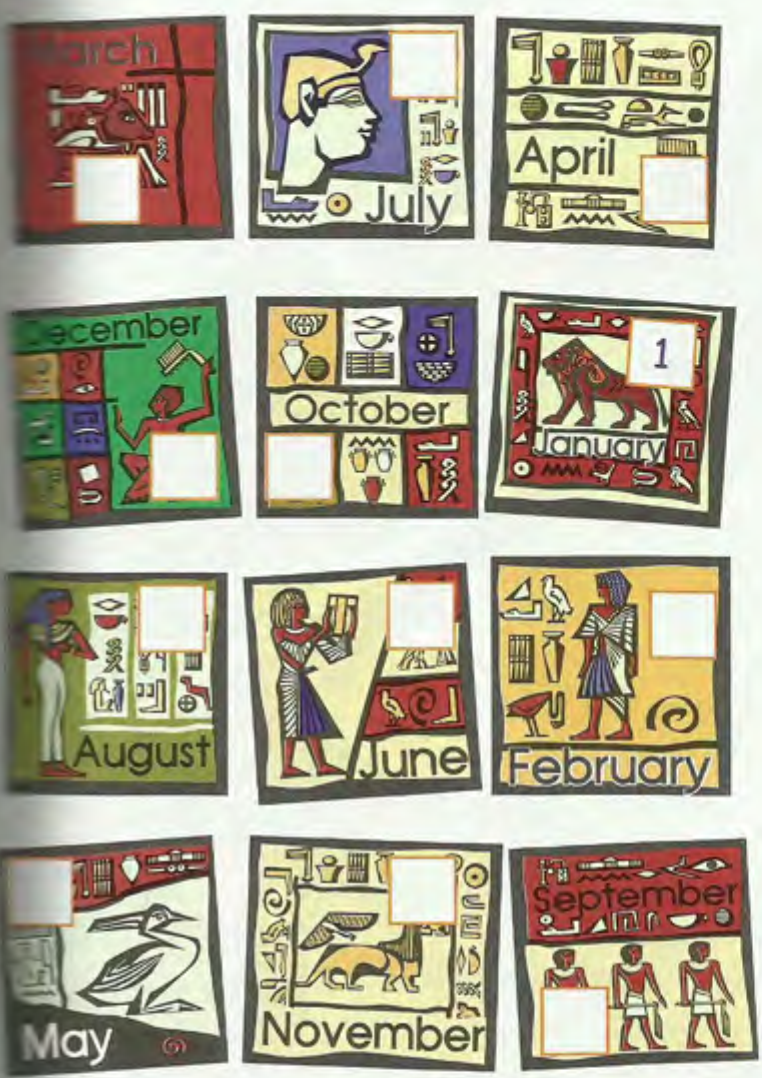 March
July
April
December
October
1
January
August
June
February
May
November
September